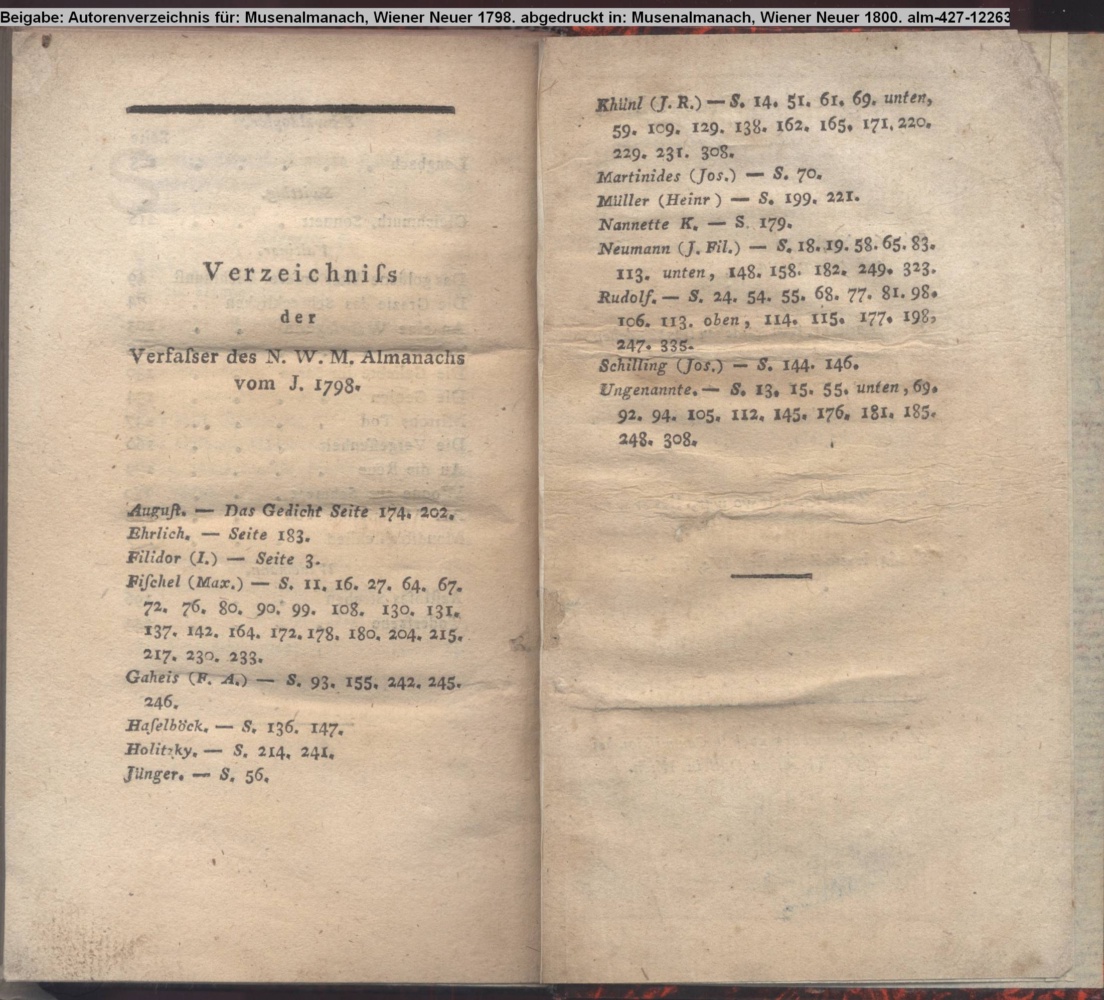 Beigabe: Autorenverzeichnis für: Musenalmanach, Wiener Neuer 1798. abgedruckt in: Musenalmanach, Wiener Neuer 1800. alm-427-12263
Verzeichniſs
der
Verfaſser des N. W. M. Almanachs
vom J. 1798.
Auguſt. — Das Gedicht Seite 174. 202.
Ehrlich. — Seite 183.
Filidor (I.) — Seite 3.
Fiſchel (Max.) — S. 11. 16. 27. 64. 67.
72. 76. 80. 90. 99. 108. 130. 131.
137. 142. 164. 172. 178. 180. 204. 215.
217. 230. 233.
Gaheis (F. A.) — S. 93. 155. 242. 245.
246.
Haſelböck. — S. 136. 147.
Holitzky. — S. 214. 241.
Jünger. — S. 56.
Khünl (J. R.) — S. 14. 51. 61. 69. unten,
59. 109. 129. 138. 162. 165. 171. 220.
229. 231. 308.
Martinides (Jos.) — S. 70.
Müller (Heinr) — S. 199. 221.
Nannette K. — S. 179.
Neumann (J. Fil.) — S. 18. 19. 58. 65. 83.
113. unten, 148. 158. 182. 249. 323.
Rudolf. — S. 24. 54. 55. 68. 77. 81. 98.
106. 113. oben, 114. 115. 177. 198,
247. 335.
Schilling (Jos.) — S. 144. 146.
Ungenannte. — S. 13. 15. 55. unten, 69.
92. 94. 105. 112. 145. 176. 181. 185.
248. 308.